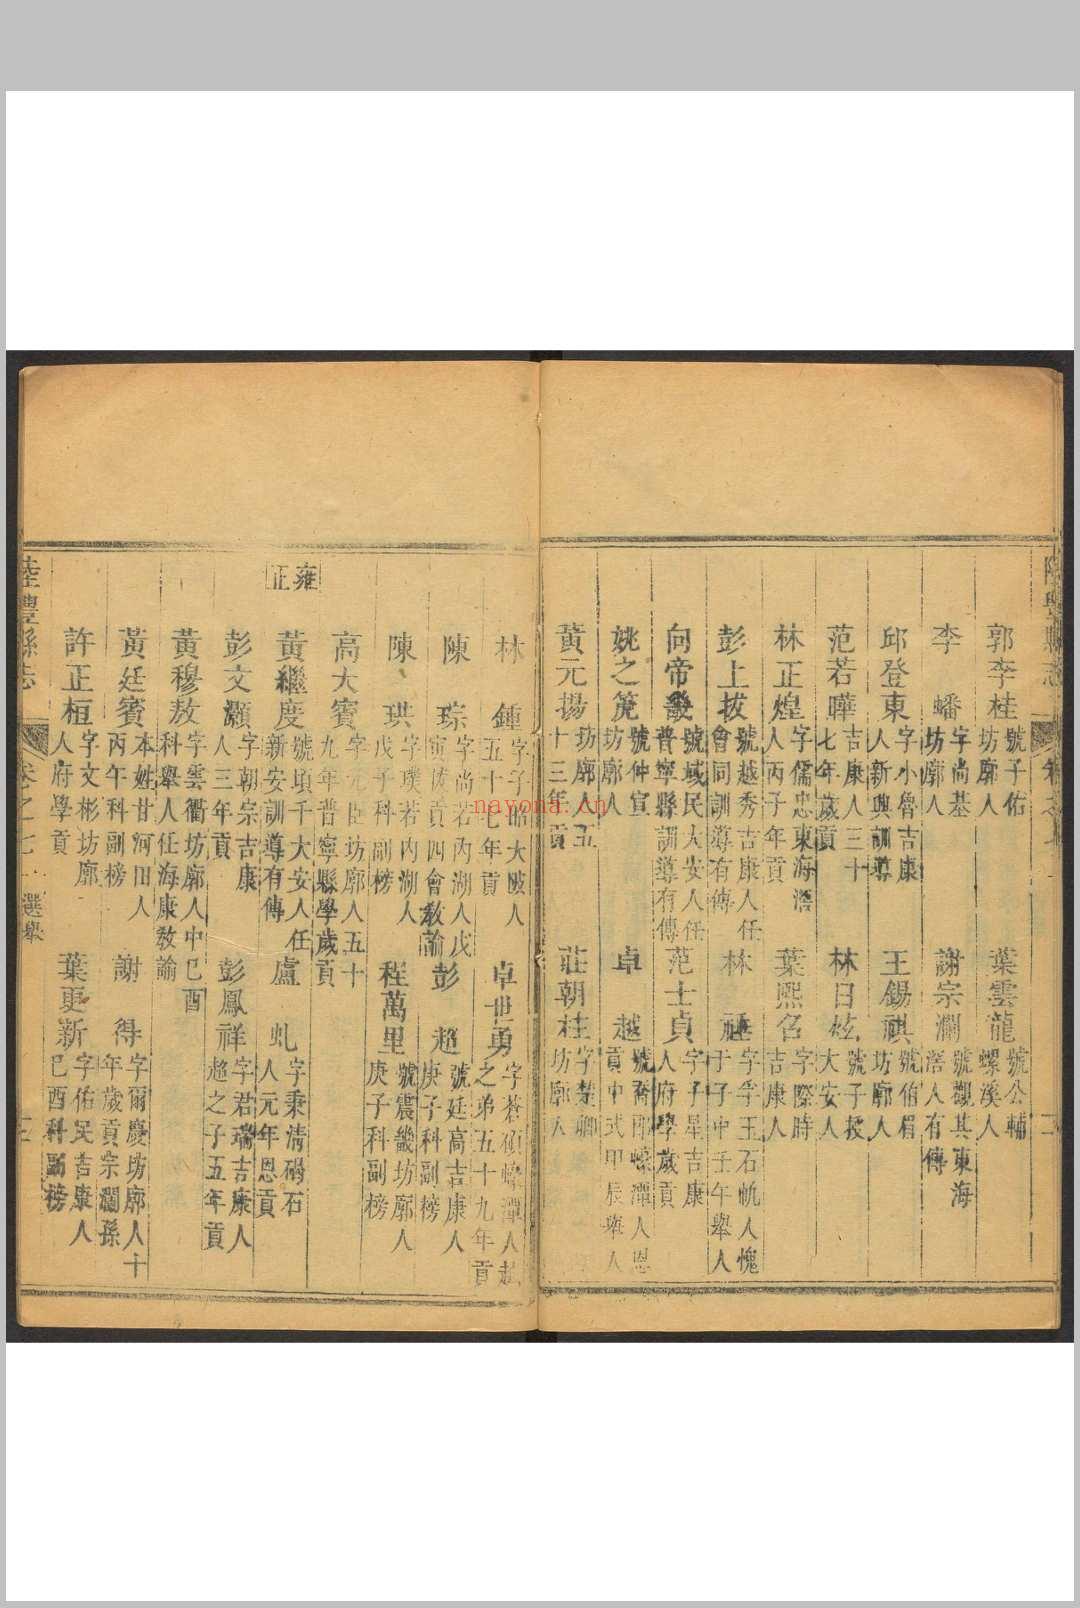 陸豐縣志
郭李桂 號子佑坊廓人 葉雲龍 號公輔螺溪人
李蟠 字尚基坊廓人 謝宗瀾 號觀其東海滘人有傳
邱登東 字小魯吉康人新興訓導 王錫祺 號佰眉坊廓人
范若曄 吉康人三十七年歲貢 林日炫 號子授大安人
林正煌 字儒忠東海滘人丙子年貢 葉熙名 字際時吉康人
彭上拔 號越秀吉康人任會同訓導有傳 林 字孚玉石帆人愧于子中壬午舉人
向帝 號域民大安人任普寧縣訓導有傳 范士貞 字子星吉康人府學歲貢
姚之箎 號仲宣坊廓人 卓越 號喬 潭人恩貢中式甲辰舉人
黃元揚 坊廓人五十三年貢 莊朝桂 字楚卿坊廓人
林鍾 字子昭大陂人五十七年貢 卓世勇 字蒼 潭人越之弟五十九年貢
陳琮 字尚若內湖人戊寅拔貢四會教諭 彭超 號廷高吉康人庚子科副榜
陳珙 字璞若內湖人戊子科副榜 程萬里 號震畿坊廓人庚子科副榜
高大賓 字 臣坊廓人五十九年普寧縣學歲貢
雍正
黃繼度 號頃千大安人任新安訓導有傳 盧虬 字秉清碣石人元年恩貢
彭文灝 字朝宗吉康人三年貢 彭鳳祥 字君瑞吉康人超之子五年貢
黃穆敖 字雲衢坊廓人中己酉科舉人任海康教諭
黃廷賓 本姓甘河田人丙午科副榜 謝得 字爾慶坊廓人十年歲貢宗瀾孫
許正桓 字文彬坊廓人府學貢 葉更新 字佑民吉康人己酉科副榜
陸豐縣志 卷之七 選舉
nayona.cn